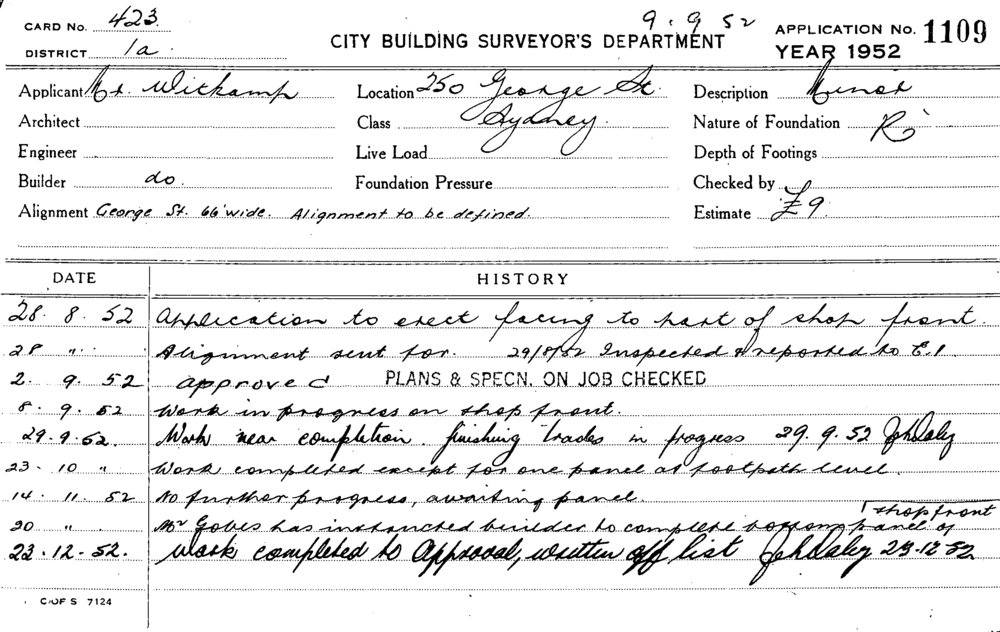 CARD No. 423.
DISTRICT 1a.
9.9 52
CITY BUILDING SURVEYOR'S DEPARTMENT
APPLICATION No. 1109
YEAR 1952
Applicant Mr. Wickamp
Location 250 George St.
Description Minor
Architect
Class Sydney.
Nature of Foundation R
Engineer
Live Load
Depth of Footings
Builder do.
Foundation Pressure
Checked by
Alignment George St. 66' wide. Alignment to be defined.
Estimate £9
DATE HISTORY
28. 8. 52 Application to erect facing to part of shop front.
28 " Alignment sent for. 29/8/52 Inspected & reported to E.I.
2. 9. 52 approved PLANS & SPECN. ON JOB CHECKED
8. 9. 52 Work in progress on shop front.
29.9.52. Work near completion. finishing trades in progress 29.9.52 Joh Daley
23. 10 " Work completed except for one panel at footpath level.
14. 11. 52 No further progress, awaiting panel.
20 " Mr has instructed builder to complete bottom panel of shop front
23.12.52. Work completed to Approval, written off list Joh Daley 23.12.52
C. OF S 7124